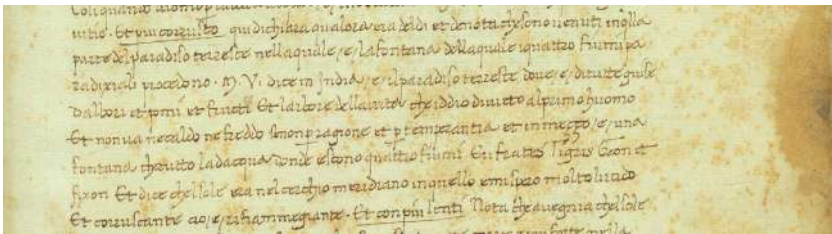 uitio. Et piu corrusco qui dichiara qualora era del di et denota che sono uenuti in q̃lla
parte del paradiso terreste nella quale /e/ la fontana della quale i quattro fiumi pa
radixiali procedono. M. V. dice in India /e/ il paradiso terreste doue /e/ di tutte guise
dalbori et pomi et fructi Et larbore della uita che iddio diuieto al primo huomo
Et non ua ne caldo ne freddo senon p ragione et p temperantia et in mezzo /e/ una
fontana che tutto ladacqua donde escono quattro fiumi Eufrates Tigris Geon et
fixon Et dice chel sole era nel cerchio meridiano in quello emispero molto lucido
Et corruscante cio /e/ rifiammegiante. Et con piu lenti Nota che auegnia chel sole